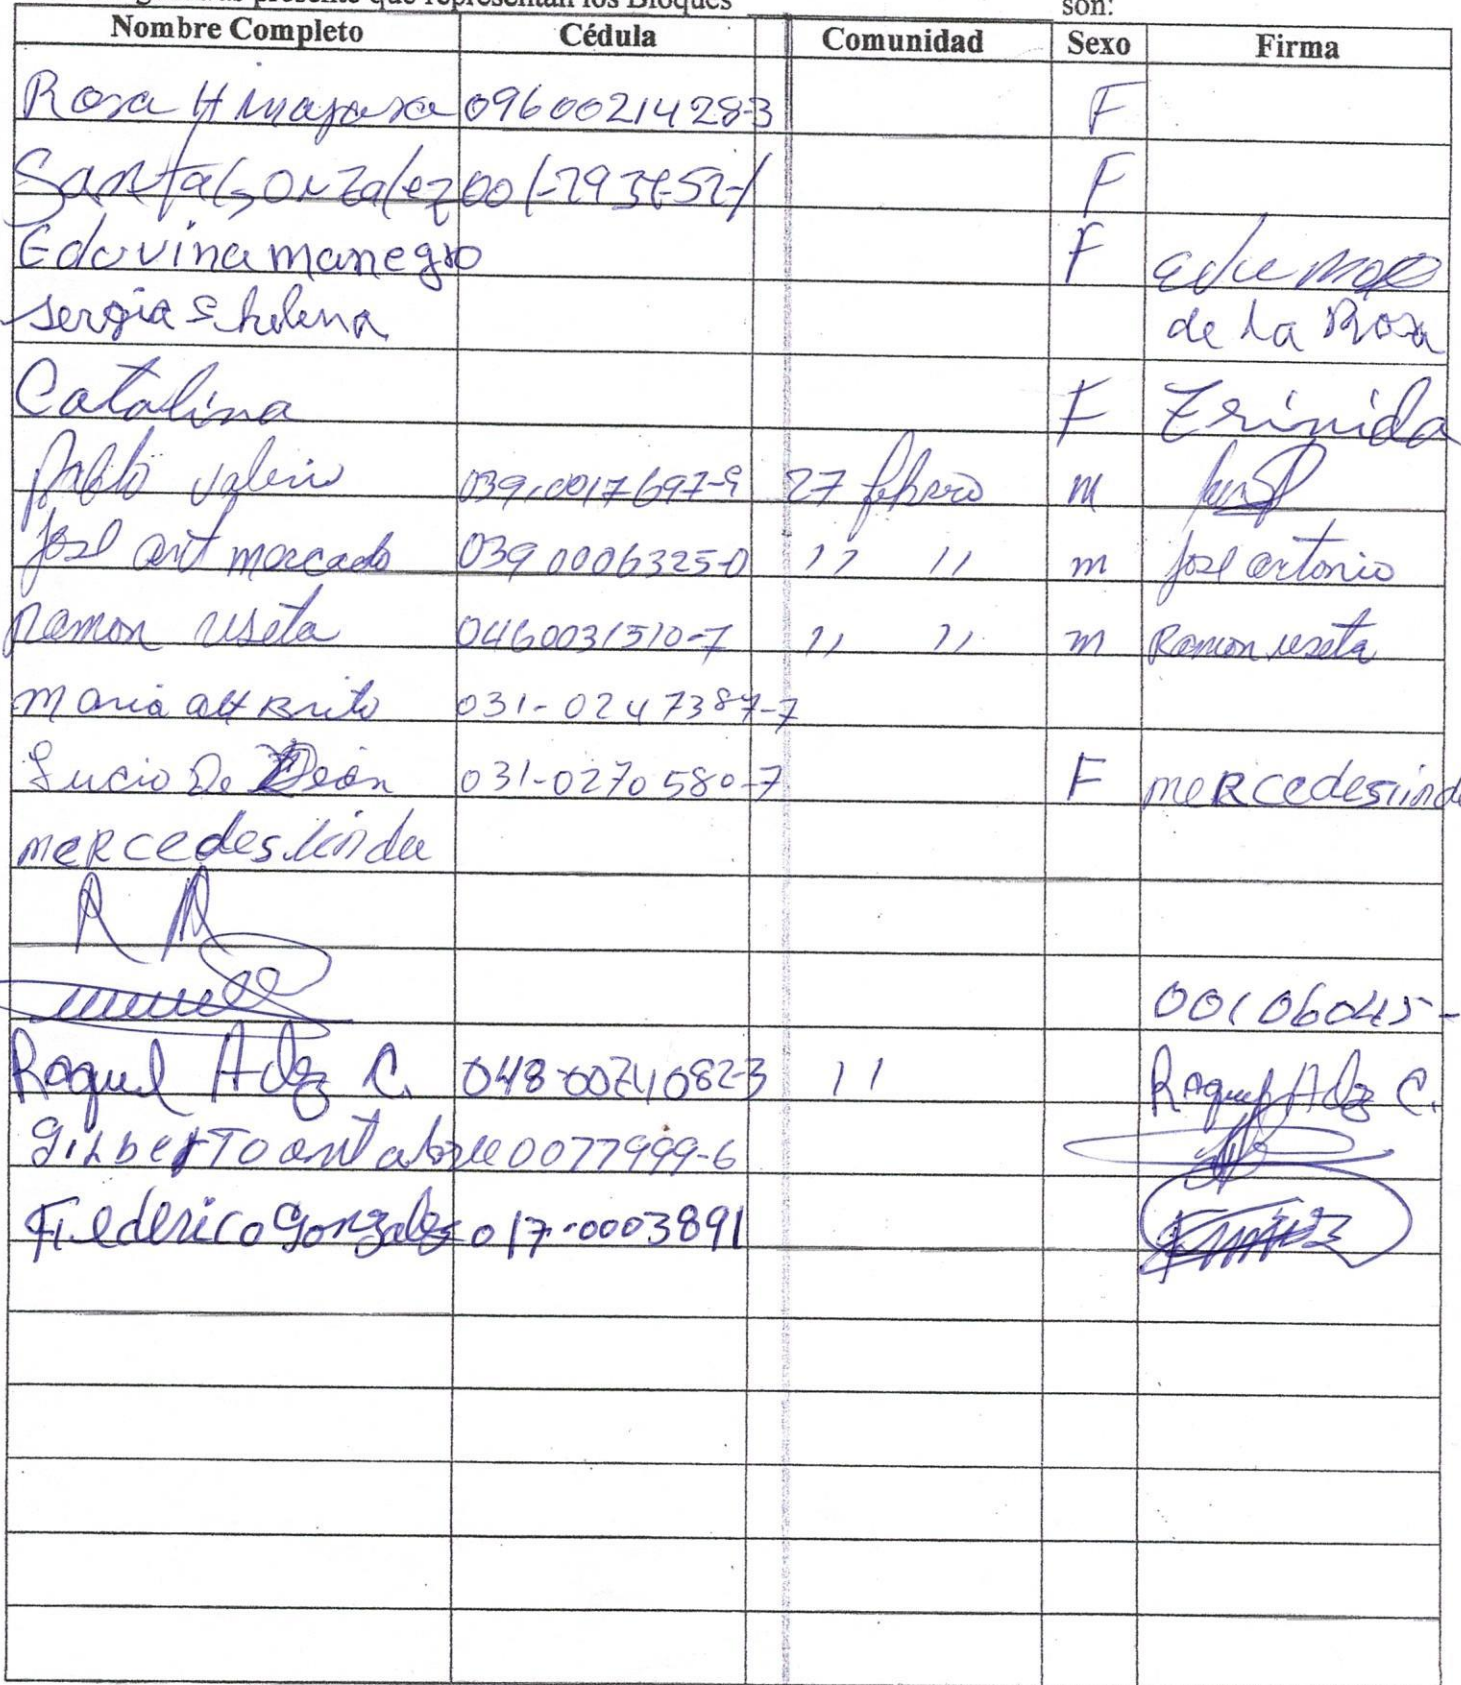 presente que representan los Bloques son:
Nombre Completo Cédula Comunidad Sexo Firma
Rosa H 09600214283 F
Santa Gonzalez 001-293 F
Eduvina manegro F
sergia helena de la Rosa
Catalina F Trinida
Pablo Valerio 039-0017697-9 27 febrero m
José ant mercado 03900063250 11 11 m José antonio
Ramon useta 0460031510-7 11 11 m Ramon useta
Maria alt Brito 031-0247387-7
Lucio De León 031-0270580-7 F mercedeslinda
mercedes linda
R R
00106045-
Raquel Adg C. 048-00241082-3 11 Raquel Adg C.
GilberTo ant 0077999-6
Fiederico Gonzalez 017-0003891